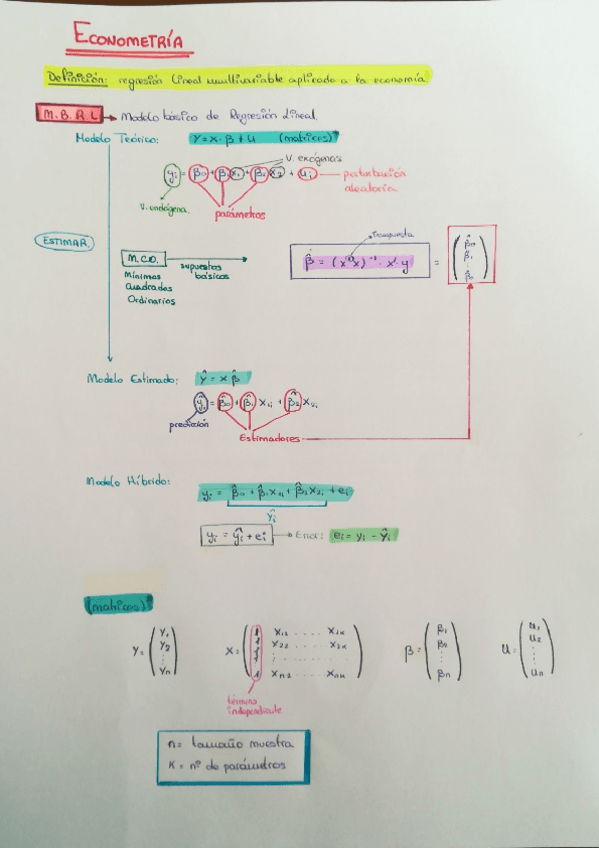 ECONOMETRÍA
Definición: regresión lineal multivariable aplicada a la economía.
M.B.R.L → Modelo básico de Regresión Lineal.
Modelo Teórico: Y = X · β + U (matrices)*
V. exógenas
yi = β0 + β1 x1 + β2 x2 + ui — perturbación
aleatoria
V. endógena. parámetros
ESTIMAR.
M.C.O. supuestos
básicos
Mínimos
Cuadrados
Ordinarios
transpuesta
β̂ = (x' x)⁻¹ · x' · y = (β̂0 β̂1 : β̂n)
Modelo Estimado: Ŷ = X β̂
ŷi = β̂0 + β̂1 X1i + β̂2 X2i
predicción
Estimadores
Modelo Híbrido: yi = β̂0 + β̂1 X1i + β̂2 X2i + ei
ŷi
yi = ŷi + ei → Error: ei = yi − ŷi
(matrices)*
Y = (Y1 Y2 : Yn) X = (1 X12 ..... X1k 1 X22 ..... X2k : 1 Xn2 ..... Xnk) β = (β1 β2 : βn) U = (u1 u2 : un)
término
independiente
n = tamaño muestra
K = nº de parámetros